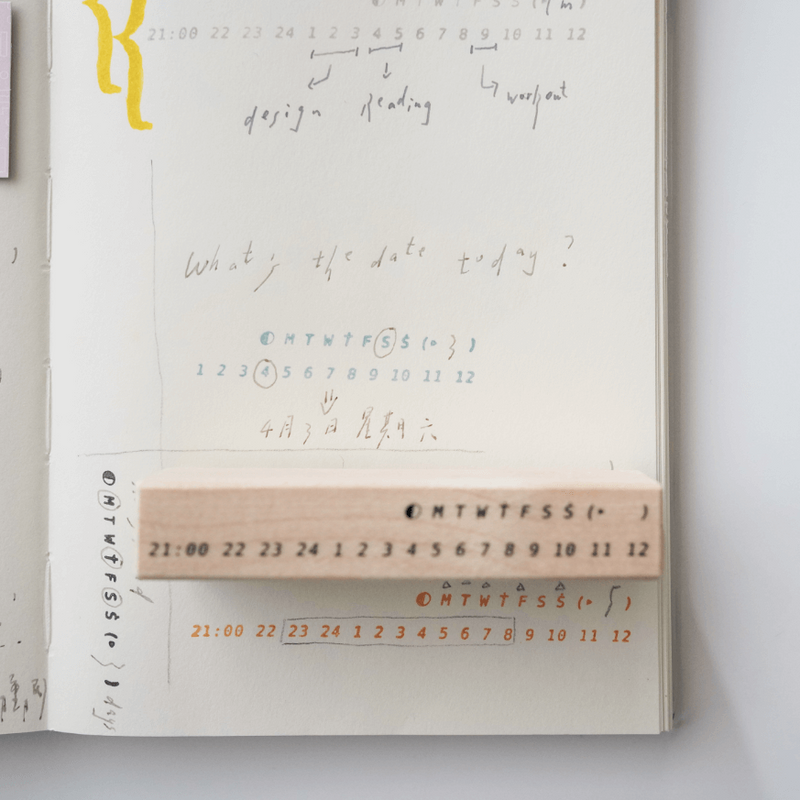 M T W T F S S (
21:00 22 23 24 1 2 3 4 5 6 7 8 9 10 11 12
design Reading workout
What's the date today?
M T W T F S S (• 3 )
1 2 3 4 5 6 7 8 9 10 11 12
4月3日 星期六
M T W T F S S (• )
21:00 22 23 24 1 2 3 4 5 6 7 8 9 10 11 12
M T W T F S S (• 5 )
21:00 22 23 24 1 2 3 4 5 6 7 8 9 10 11 12
M T W T F S S (• 3 ) days